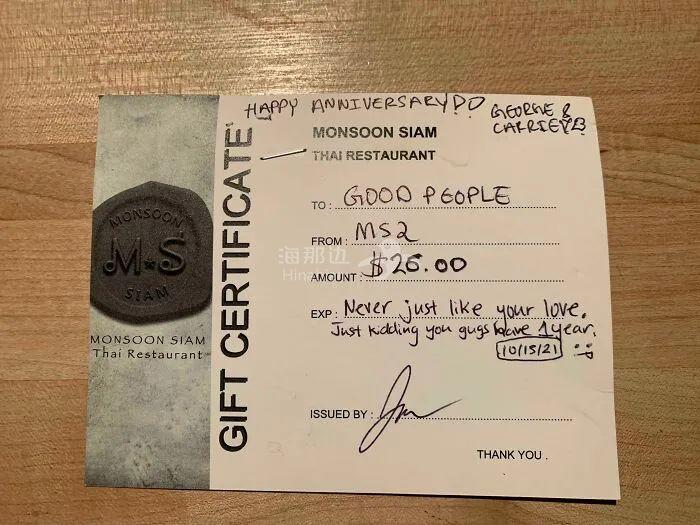 HAPPY ANNIVERSARY!!
GEORGE &
CARRIE
MONSOON SIAM
THAI RESTAURANT
GIFT CERTIFICATE
MONSOON
M*S
SIAM
MONSOON SIAM
Thai Restaurant
TO : GOOD PEOPLE
FROM : MS2
海那边
AMOUNT : $25.00
EXP : Never just like your love.
Just kidding you guys have 1 year.
10/15/21
ISSUED BY :
THANK YOU .